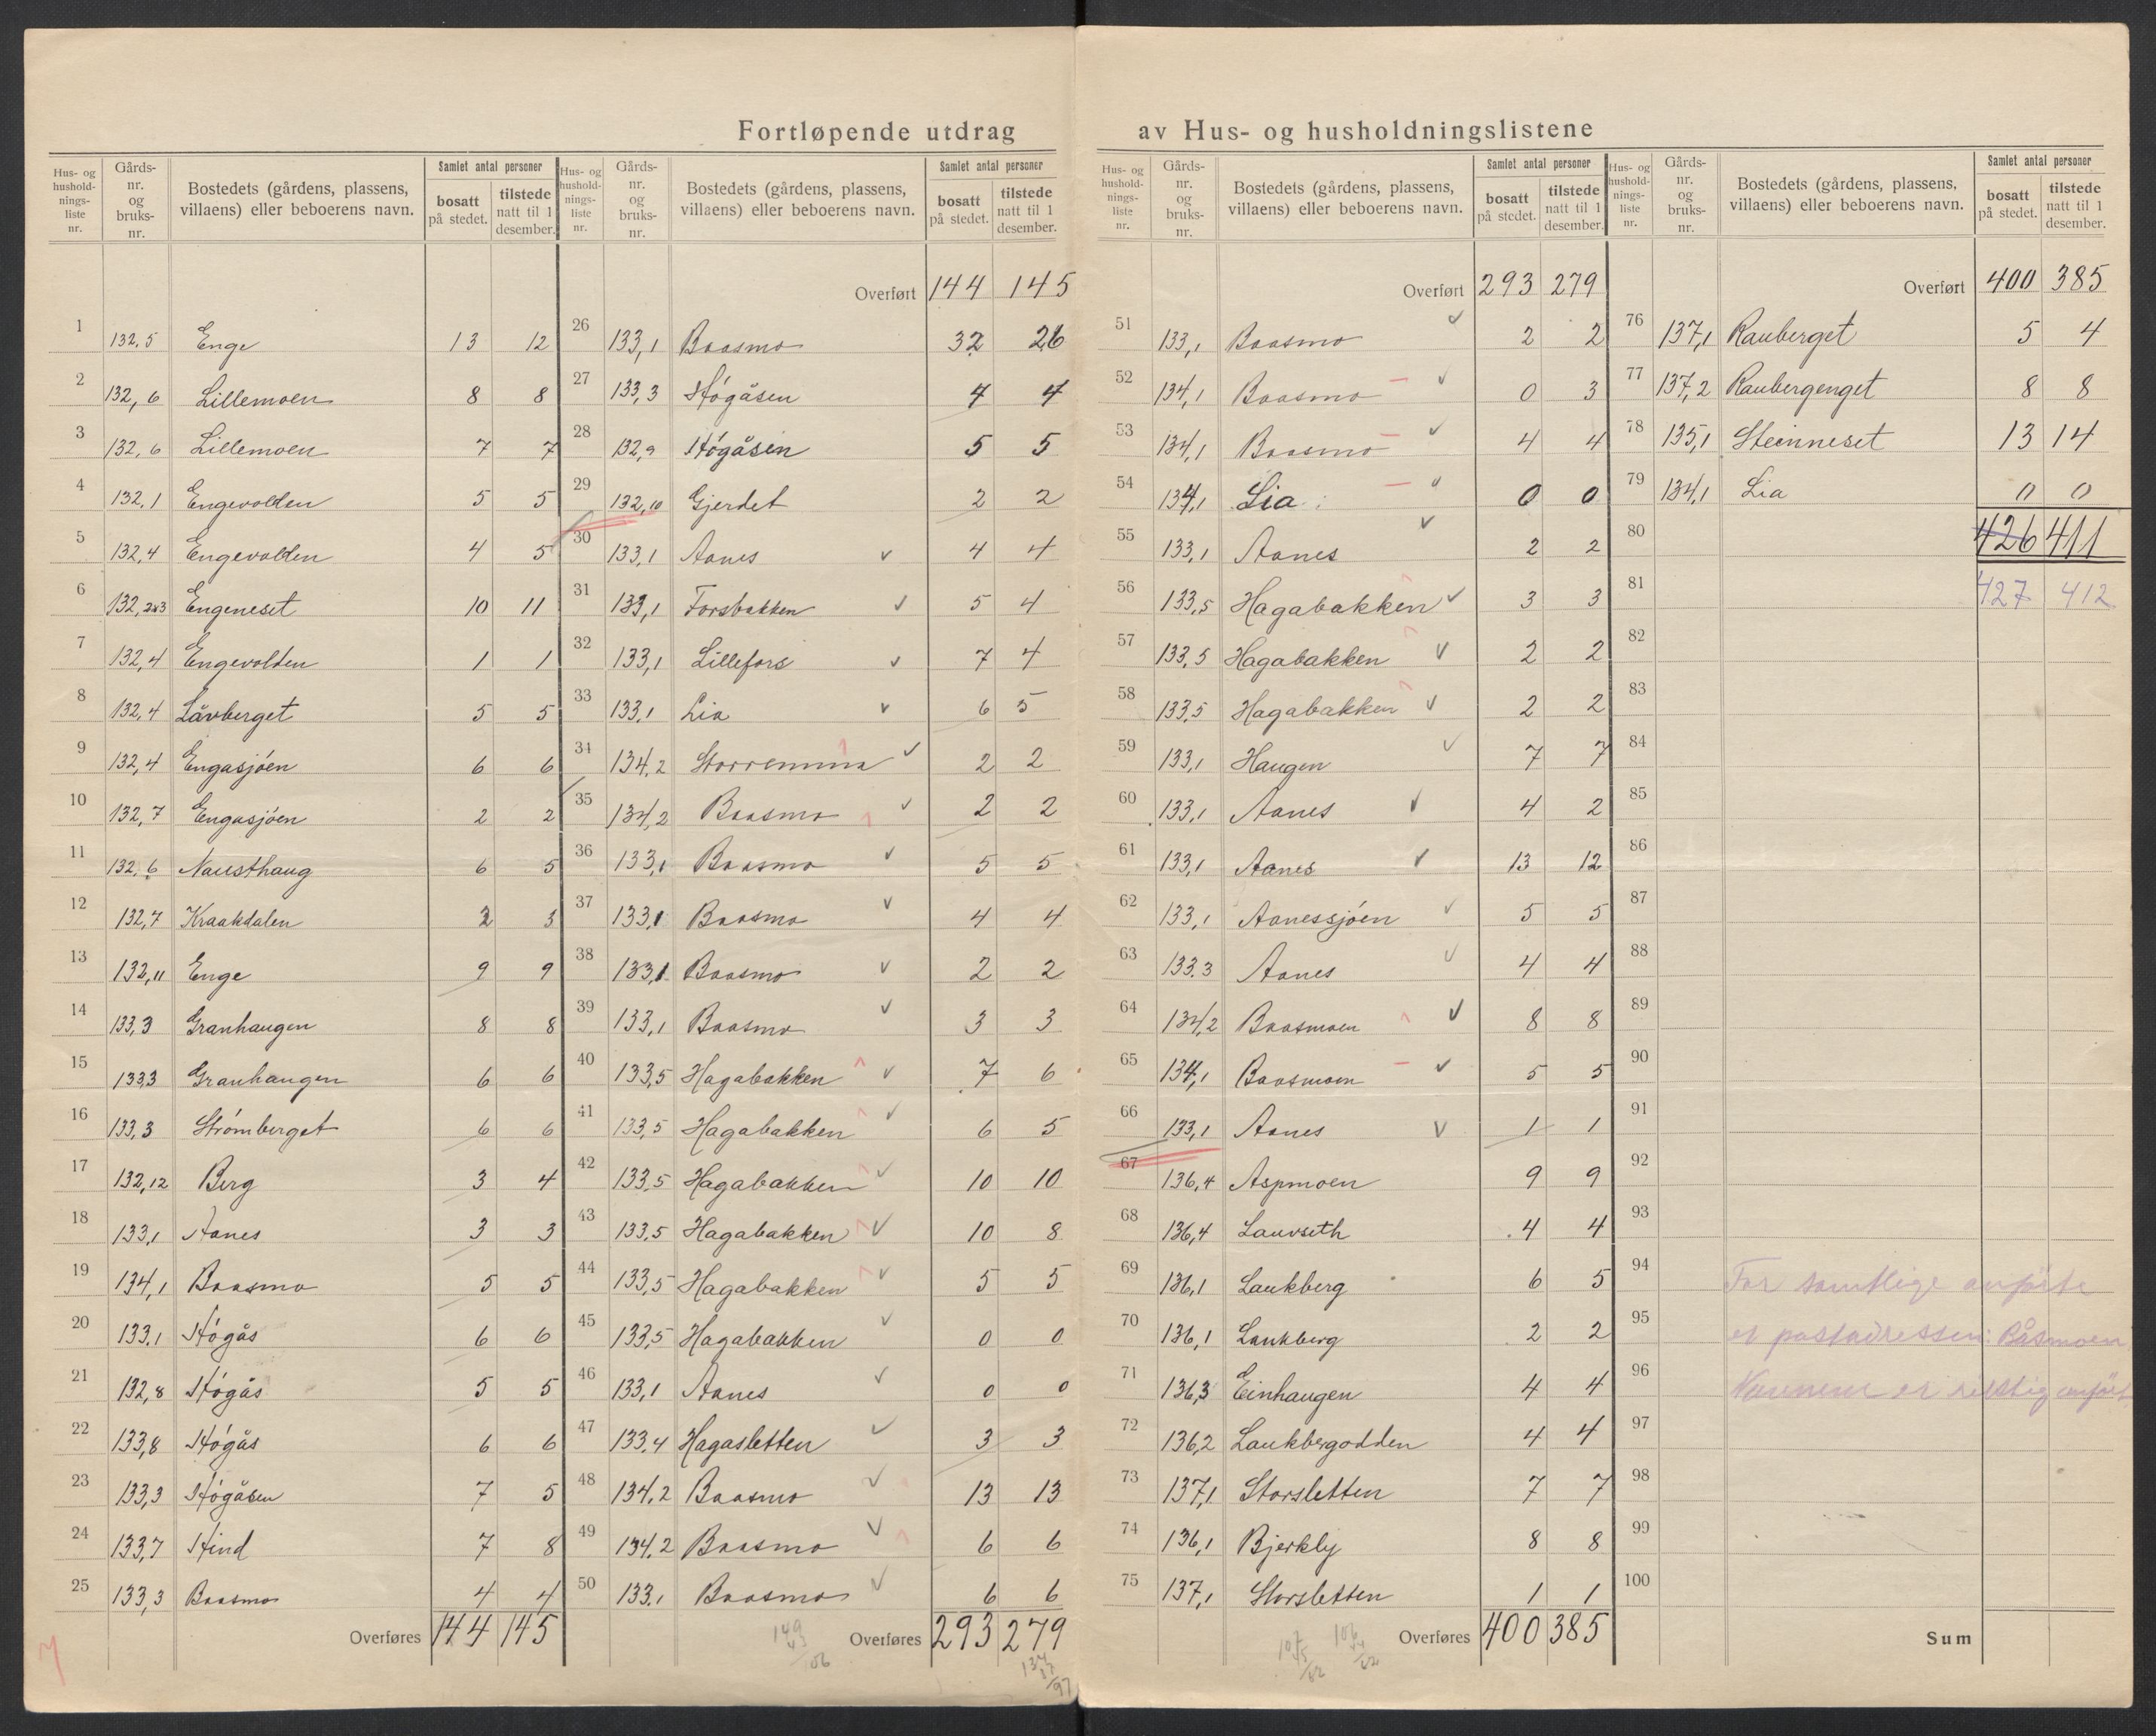 Fortløpende utdrag av Hus- og husholdningslistene
Hus- og hushold-nings-liste nr. | Gårds-nr. og bruks-nr. | Bostedets (gårdens, plassens, villaens) eller beboerens navn. | Samlet antal personer bosatt på stedet. | tilstede natt til 1 desember.
1 132,5 Enge 13 12
2 132,6 Lillemoen 8 8
3 132,6 Lillemoen 7 7
4 132,1 Engevolden 5 5
5 132,4 Engevolden 4 5
6 132,2&3 Engeneset 10 11
7 132,4 Engevolden 1 1
8 132,4 Låvberget 5 5
9 132,4 Engasjøen 6 6
10 132,7 Engasjøen 2 2
11 132,6 Nausthaug 6 5
12 132,7 Kraakdalen 2 3
13 132,11 Enge 9 9
14 133,3 Granhaugen 8 8
15 133,3 Granhaugen 6 6
16 133,3 Strømberget 6 6
17 132,12 Berg 3 4
18 133,1 Aanes 3 3
19 134,1 Baasmo 5 5
20 133,1 Høgås 6 6
21 132,8 Høgås 5 5
22 133,8 Høgås 6 6
23 133,3 Høgåsen 7 5
24 133,7 Hind 7 8
25 133,3 Baasmo 4 4
Overføres 144 145
Hus- og hushold-nings-liste nr. | Gårds-nr. og bruks-nr. | Bostedets (gårdens, plassens, villaens) eller beboerens navn. | Samlet antal personer bosatt på stedet. | tilstede natt til 1 desember.
Overført 144 145
26 133,1 Baasmo 32 26
27 133,3 Høgåsen 4 4
28 132,9 Høgåsen 5 5
29 132,10 Gjerdet 2 2
30 133,1 Aanes 4 4
31 133,1 Forsbakken 5 4
32 133,1 Lillefors 7 4
33 133,1 Lia 6 5
34 134,2 Storremma 2 2
35 134,2 Baasmo 2 2
36 133,1 Baasmo 5 5
37 133,1 Baasmo 4 4
38 133,1 Baasmo 2 2
39 133,1 Baasmo 3 3
40 133,5 Hagabakken 7 6
41 133,5 Hagabakken 6 5
42 133,5 Hagabakken 10 10
43 133,5 Hagabakken 10 8
44 133,5 Hagabakken 5 5
45 133,5 Hagabakken 0 0
46 133,1 Aanes 0 0
47 133,4 Hagasletten 3 3
48 134,2 Baasmo 13 13
49 134,2 Baasmo 6 6
50 133,1 Baasmo 6 6
Overføres 293 279
Hus- og hushold-nings-liste nr. | Gårds-nr. og bruks-nr. | Bostedets (gårdens, plassens, villaens) eller beboerens navn. | Samlet antal personer bosatt på stedet. | tilstede natt til 1 desember.
Overført 293 279
51 133,1 Baasmo 2 2
52 134,1 Baasmo 0 3
53 134,1 Baasmo 4 4
54 134,1 Lia 0 0
55 133,1 Aanes 2 2
56 133,5 Hagabakken 3 3
57 133,5 Hagabakken 2 2
58 133,5 Hagabakken 2 2
59 133,1 Haugen 7 7
60 133,1 Aanes 4 2
61 133,1 Aanes 13 12
62 133,1 Aanessjøen 5 5
63 133.3 Aanes 4 4
64 134,2 Baasmoen 8 8
65 134,1 Baasmoen 5 5
66 133,1 Aanes 1 1
67 136,4 Aspmoen 9 9
68 136,4 Lauvseth 4 4
69 136,1 Laukberg 6 5
70 136,1 Laukberg 2 2
71 136,3 Einhaugen 4 4
72 136,2 Laukbergodden 4 4
73 137,1 Storsletten 7 7
74 136,1 Bjerkly 8 8
75 137,1 Storsletten 1 1
Overføres 400 385
Hus- og hushold-nings-liste nr. | Gårds-nr. og bruks-nr. | Bostedets (gårdens, plassens, villaens) eller beboerens navn. | Samlet antal personer bosatt på stedet. | tilstede natt til 1 desember.
Overført 400 385
76 137,1 Rauberget 5 4
77 137,2 Raubergenget 8 8
78 135,1 Steinneset 13 14
79 134,1 Lia 0 0
80 426 411
81 427 412
82
83
84
85
86
87
88
89
90
91
92
93
94 For samtlige anførte
95 er postadressen: Båsmoen
96 Navnene er riktig anført
97
98
99
100
Sum